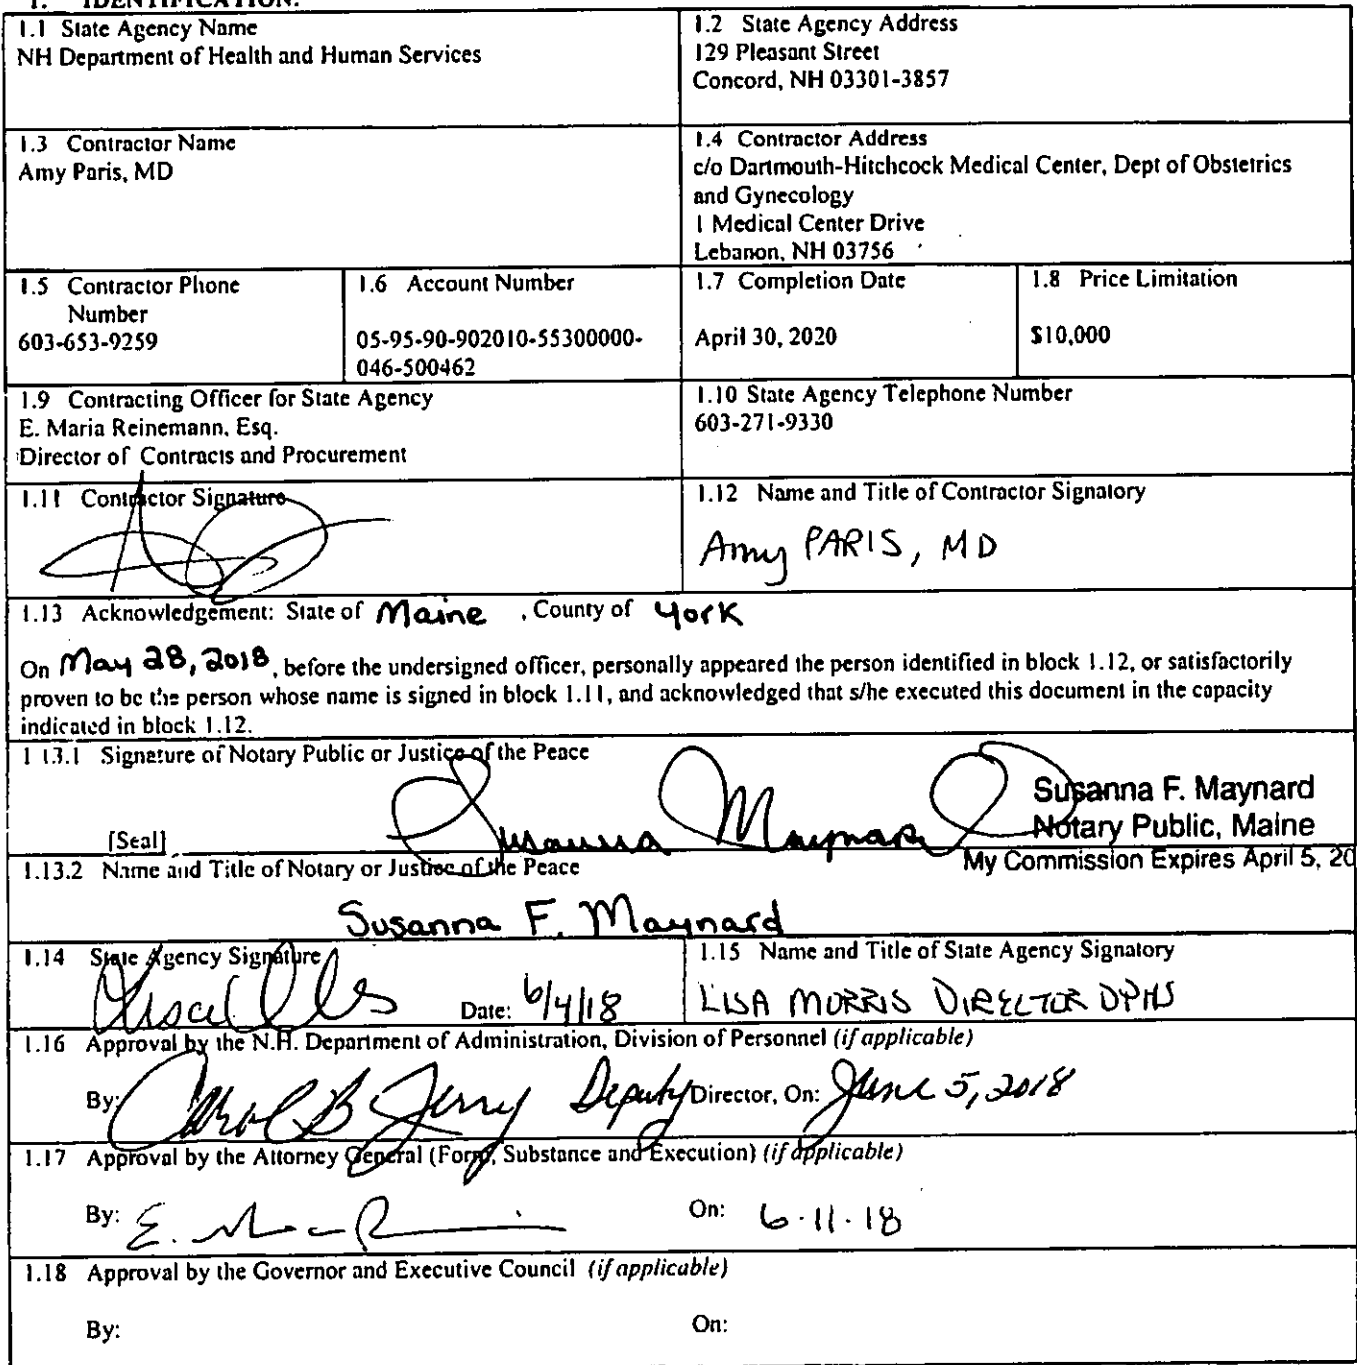 1. IDENTIFICATION.
1.1 State Agency Name
NH Department of Health and Human Services
1.2 State Agency Address
129 Pleasant Street
Concord, NH 03301-3857
1.3 Contractor Name
Amy Paris, MD
1.4 Contractor Address
c/o Dartmouth-Hitchcock Medical Center, Dept of Obstetrics
and Gynecology
1 Medical Center Drive
Lebanon, NH 03756
1.5 Contractor Phone
Number
603-653-9259
1.6 Account Number
05-95-90-902010-55300000-
046-500462
1.7 Completion Date
April 30, 2020
1.8 Price Limitation
$10,000
1.9 Contracting Officer for State Agency
E. Maria Reinemann, Esq.
Director of Contracts and Procurement
1.10 State Agency Telephone Number
603-271-9330
1.11 Contractor Signature
1.12 Name and Title of Contractor Signatory
Amy PARIS, MD
1.13 Acknowledgement: State of Maine , County of York
On May 28, 2018, before the undersigned officer, personally appeared the person identified in block 1.12, or satisfactorily
proven to be the person whose name is signed in block 1.11, and acknowledged that s/he executed this document in the capacity
indicated in block 1.12.
1.13.1 Signature of Notary Public or Justice of the Peace
Susanna Maynard
Susanna F. Maynard
Notary Public, Maine
[Seal]
My Commission Expires April 5, 20
1.13.2 Name and Title of Notary or Justice of the Peace
Susanna F. Maynard
1.14 State Agency Signature
Date: 6/4/18
1.15 Name and Title of State Agency Signatory
LISA MORRIS DIRECTOR DPHS
1.16 Approval by the N.H. Department of Administration, Division of Personnel (if applicable)
By: Deputy Director, On: June 5, 2018
1.17 Approval by the Attorney General (Form, Substance and Execution) (if applicable)
By: E. On: 6.11.18
1.18 Approval by the Governor and Executive Council (if applicable)
By: On: